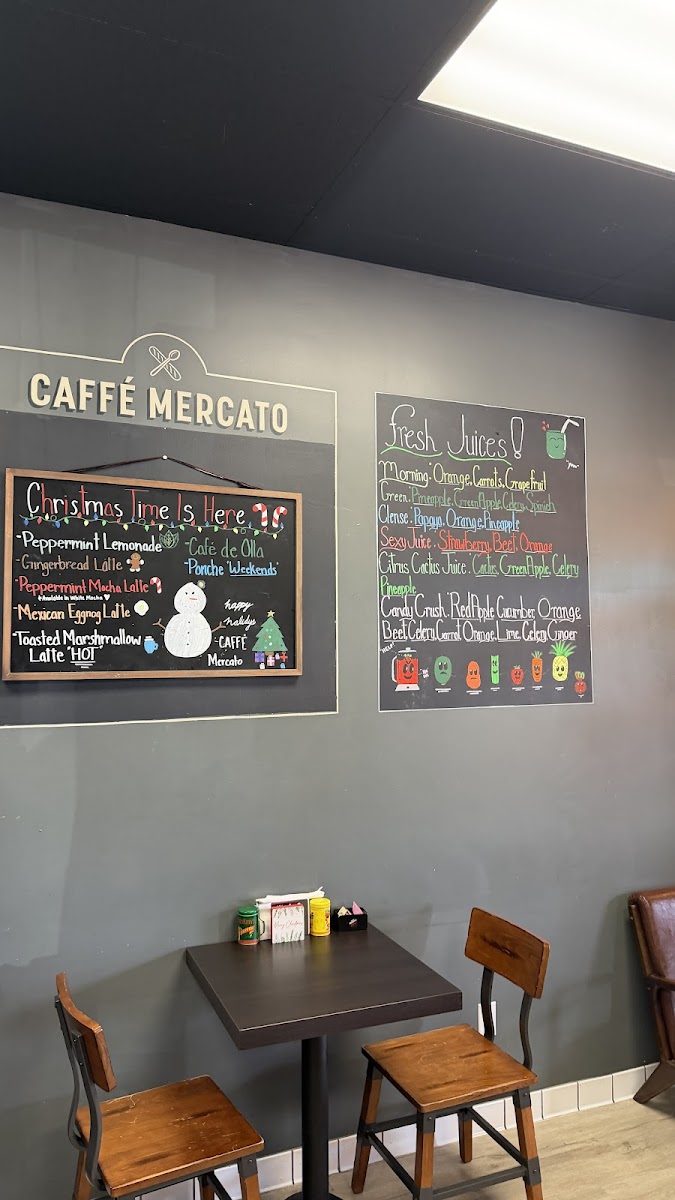 CAFFÉ MERCATO
Christmas Time Is Here
-Peppermint Lemonade
-Gingerbread Latte
-Peppermint Mocha Latte
*Available in White Mocha
-Mexican Eggnog Latte
-Toasted Marshmallow
Latte "HOT"
-Café de Olla
-Ponche "Weekends"
happy
holidys
-CAFFÉ
Mercato
Fresh Juices!
Morning: Orange, Carrots, Grapefruit
Green: Pineapple, Green Apple, Celery, Spinich
Clense: Papaya, Orange, Pineapple
Sexy Juice: Strawberry, Beet, Orange
Citrus Cactus Juice: Cactus, Green Apple, Celery
Pineapple
Candy Crush: Red Apple Cucumber Orange
Beet, Celery, Carrot Orange, Lime, Celery, Ginger